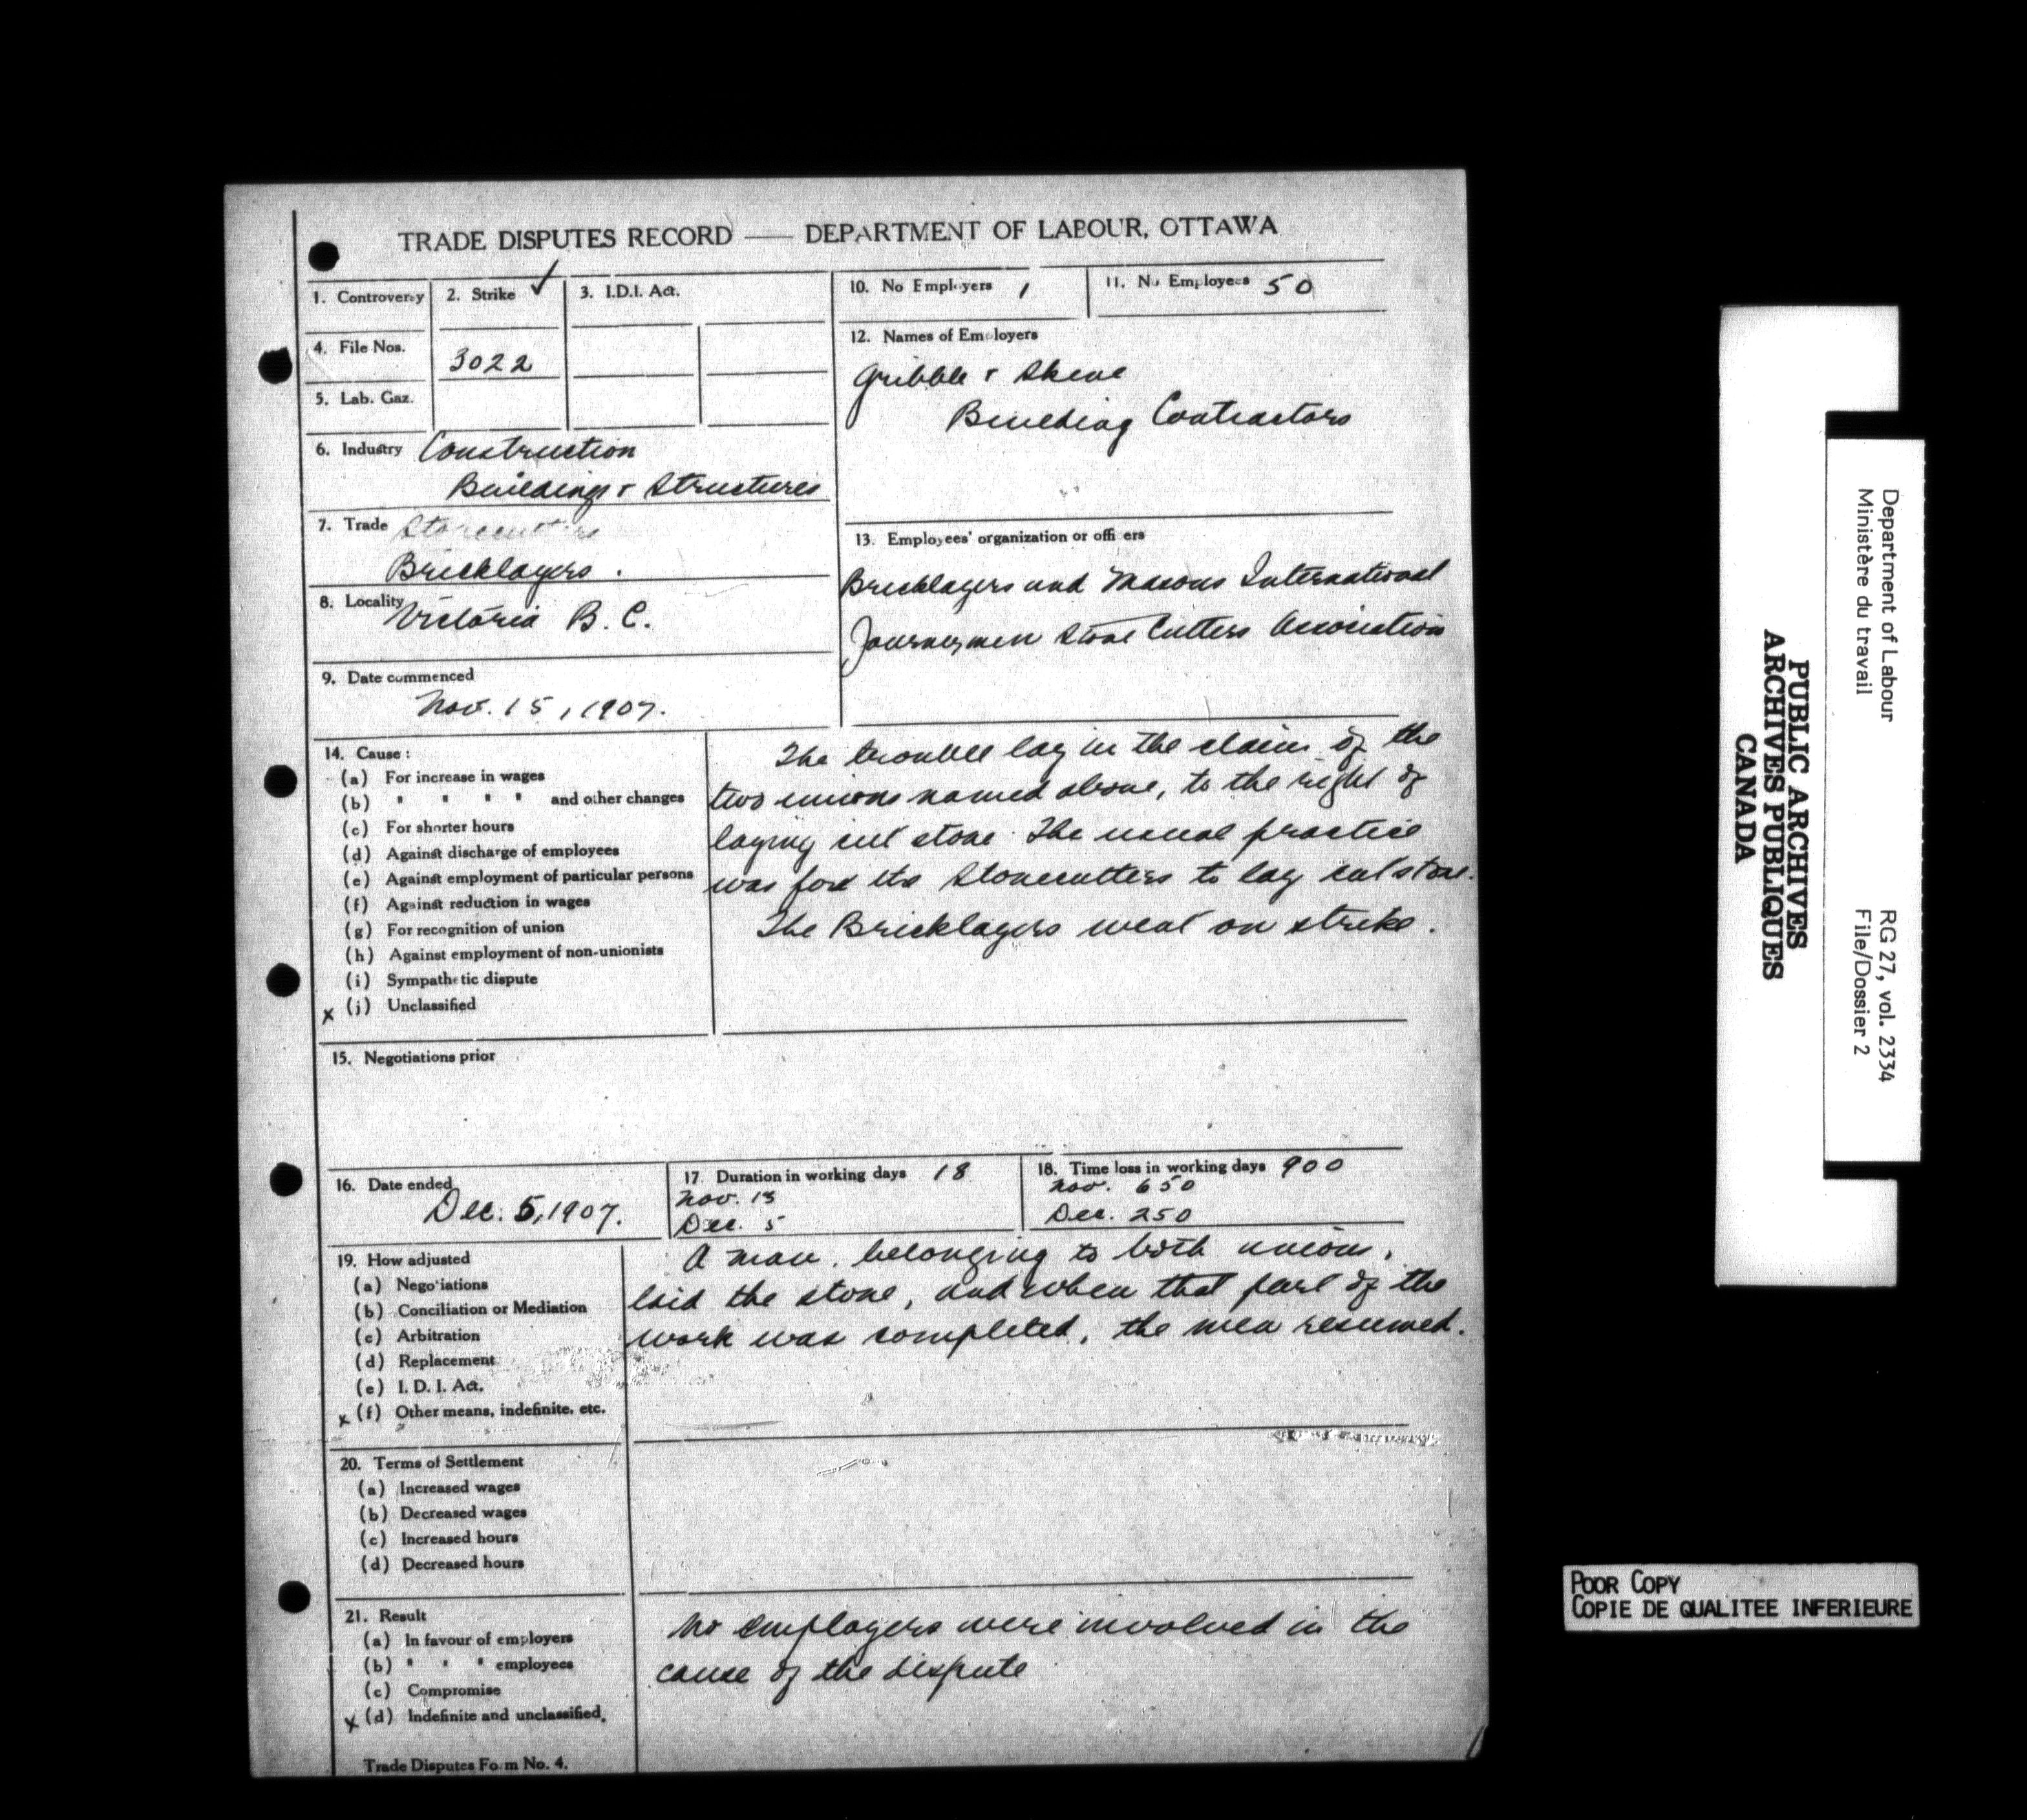 TRADE DISPUTES RECORD — DEPARTMENT OF LABOUR, OTTAWA
1. Controversy
2. Strike ✓
3. I.D.I. Act.
10. No Employers 1
11. No Employees 50
4. File Nos. 3022
5. Lab. Gaz.
12. Names of Employers
Gribble & Skene
Building Contractors
6. Industry Construction
Buildings & Structures
7. Trade Stonecutters
Bricklayers.
8. Locality
Victoria B.C.
9. Date commenced
Nov. 15, 1907.
13. Employees' organization or officers
Bricklayers and Masons International
Journeymen Stone Cutters Association
14. Cause:
(a) For increase in wages
(b) " " " " and other changes
(c) For shorter hours
(d) Against discharge of employees
(e) Against employment of particular persons
(f) Against reduction in wages
(g) For recognition of union
(h) Against employment of non-unionists
(i) Sympathetic dispute
x (j) Unclassified
The trouble lay in the claim of the
two unions named above, to the right of
laying cut stone. The usual practice
was for the Stonecutters to lay cut stone.
The Bricklayers went on strike.
15. Negotiations prior
16. Date ended
Dec. 5, 1907.
17. Duration in working days 18
Nov. 13
Dec. 5
18. Time loss in working days 900
Nov. 650
Dec. 250
19. How adjusted
(a) Negotiations
(b) Conciliation or Mediation
(c) Arbitration
(d) Replacement
(e) I. D. I. Act.
x (f) Other means, indefinite, etc.
A man, belonging to both unions,
laid the stone, and when that part of the
work was completed, the men resumed.
20. Terms of Settlement
(a) Increased wages
(b) Decreased wages
(c) Increased hours
(d) Decreased hours
21. Result
(a) In favour of employers
(b) " " " employees
(c) Compromise
x (d) Indefinite and unclassified.
No employers were involved in the
cause of the dispute
Trade Disputes Form No. 4.
Department of Labour
Ministère du travail
RG 27, vol. 2334
File/Dossier 2
PUBLIC ARCHIVES
ARCHIVES PUBLIQUES
CANADA
POOR COPY
COPIE DE QUALITEE INFERIEURE